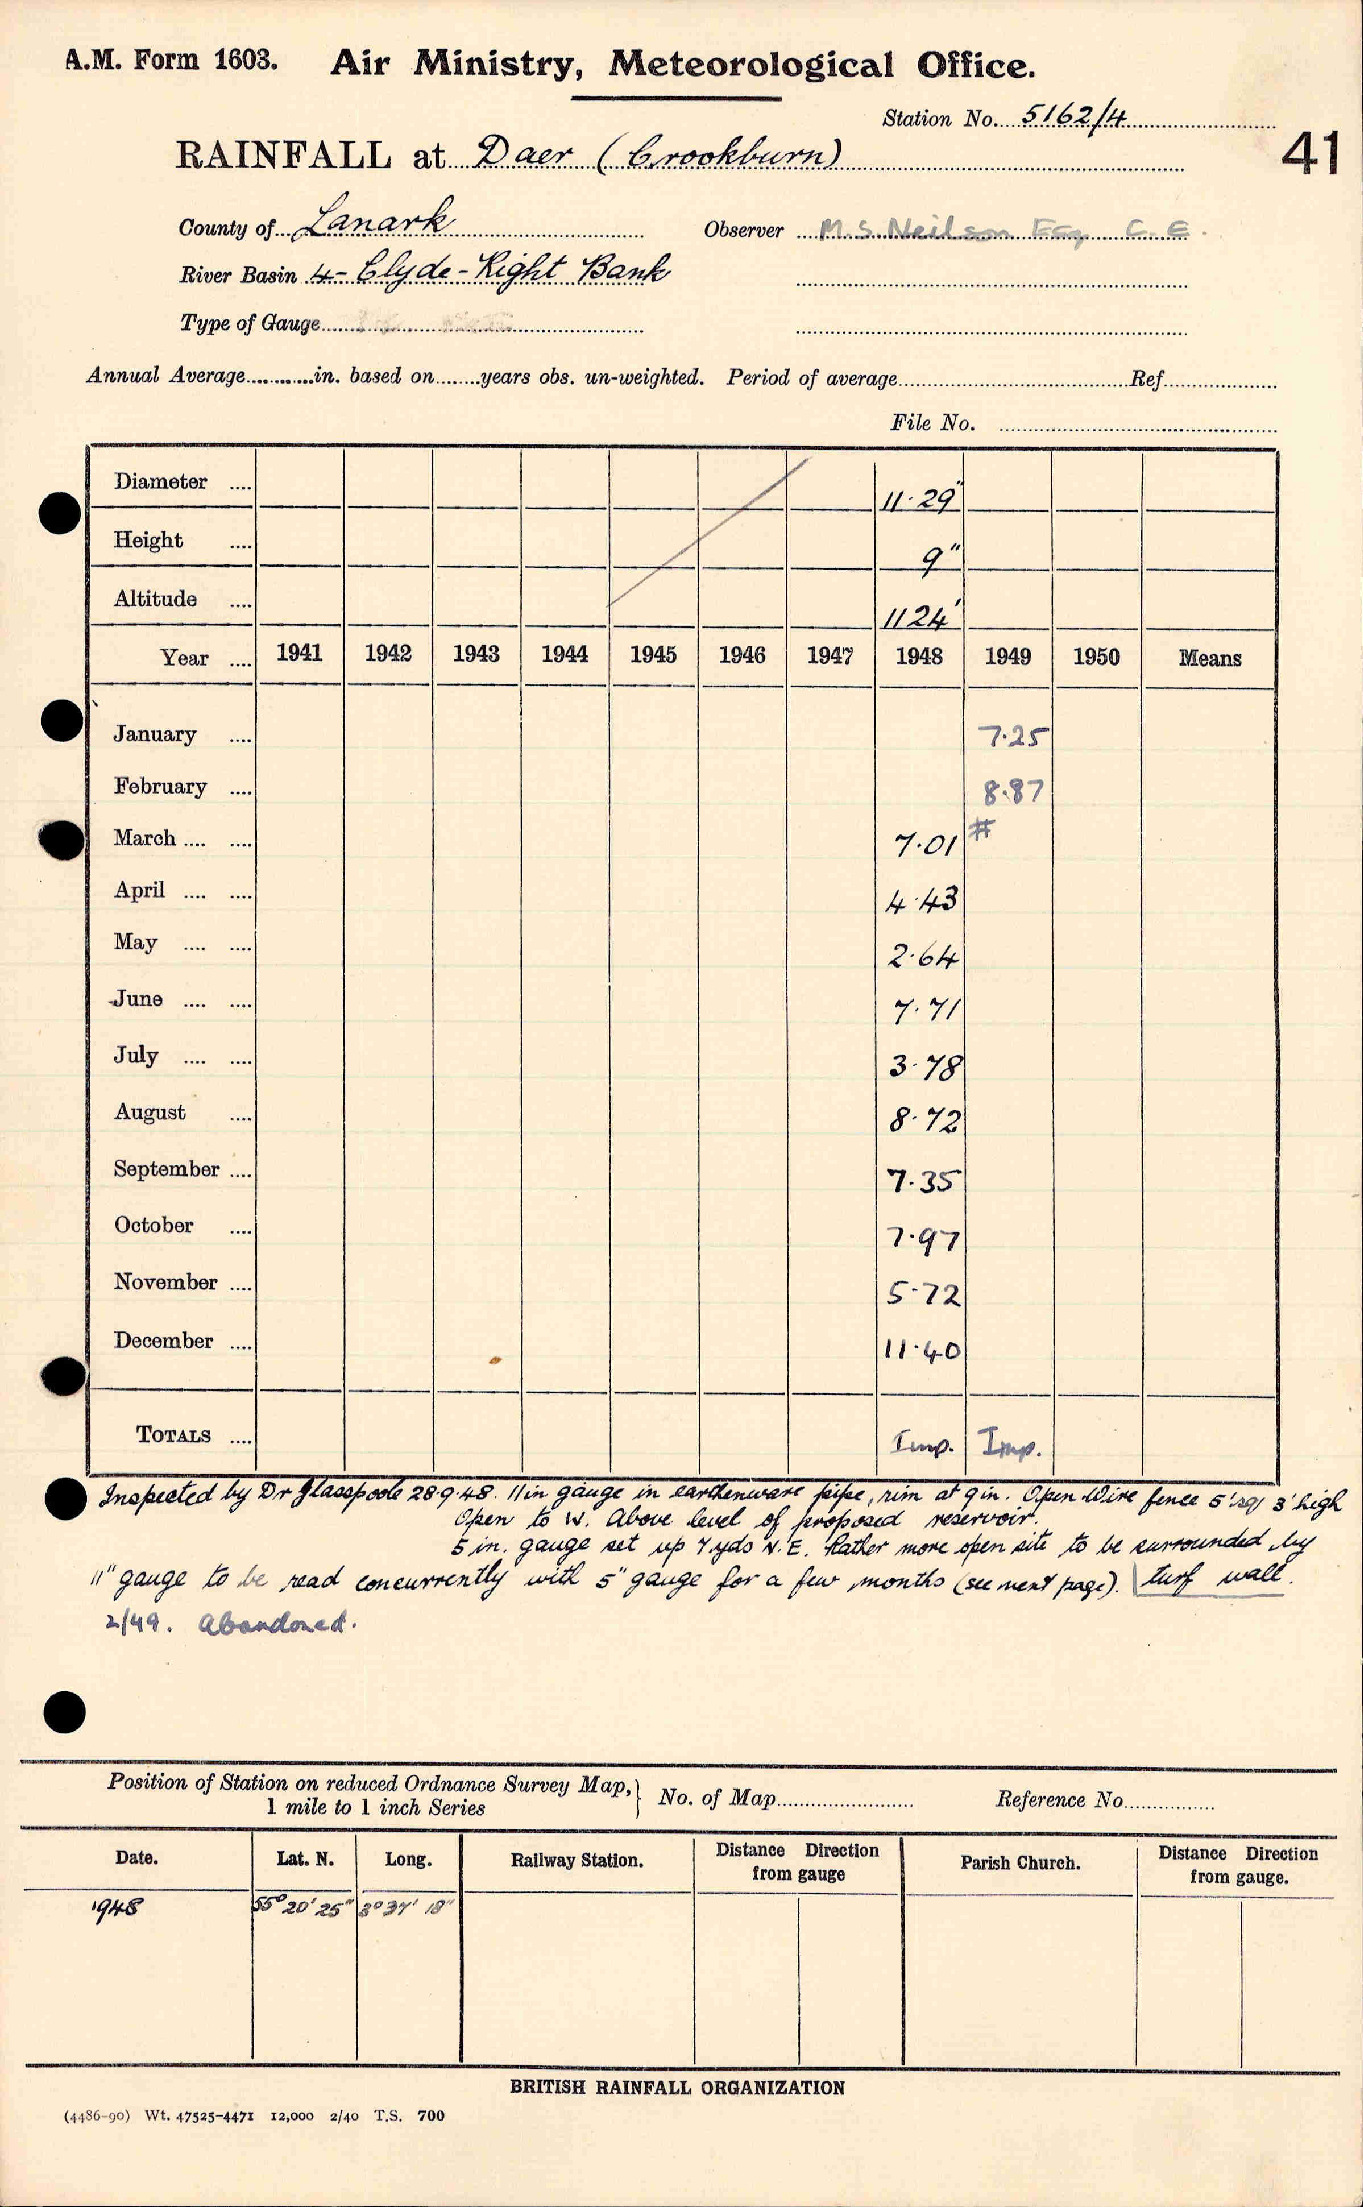 A.M. Form 1603. Air Ministry, Meteorological Office.
Station No. 5162/4
41
RAINFALL at Daer (Crookburn)
County of Lanark Observer M.S. Neilson Esq C.E.
River Basin 4 - Clyde - Right Bank
Type of Gauge
Annual Average............in. based on........years obs. un-weighted. Period of average Ref.
File No.
Diameter .... 11.29"
Height .... 9"
Altitude .... 1124'
Year .... 1941 1942 1943 1944 1945 1946 1947 1948 1949 1950 Means
January .... 7.25
February .... 8.87
March .... .... 7.01 #
April .... .... 4.43
May .... .... 2.64
June .... .... 7.71
July .... .... 3.78
August .... 8.72
September .... 7.35
October .... 7.97
November .... 5.72
December .... 11.40
TOTALS .... Imp. Imp.
Inspected by Dr Glasspoole 28.9.48. 11in gauge in earthenware pipe, rim at 9in. Open Wire fence 5' sq, 3' high
Open to W. Above level of proposed reservoir.
5 in. gauge set up 7 yds N.E. Rather more open site to be surrounded by
11" gauge to be read concurrently with 5" gauge for a few months (see next page). turf wall.
2/49. Abandoned.
Position of Station on reduced Ordnance Survey Map, } No. of Map Reference No.
1 mile to 1 inch Series
Date. Lat. N. Long. Railway Station. Distance Direction from gauge Parish Church. Distance Direction from gauge.
1948 55° 20' 25" 3° 37' 18"
BRITISH RAINFALL ORGANIZATION
(4486-90) Wt. 47525-4471 12,000 2/40 T.S. 700